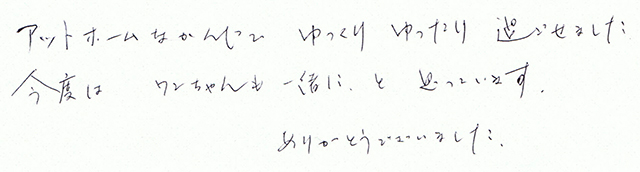 アットホームなかんじで ゆっくり ゆったり 過ごせました
今度は ワンちゃんも 一緒に、と 思っています。
ありがとうございました。